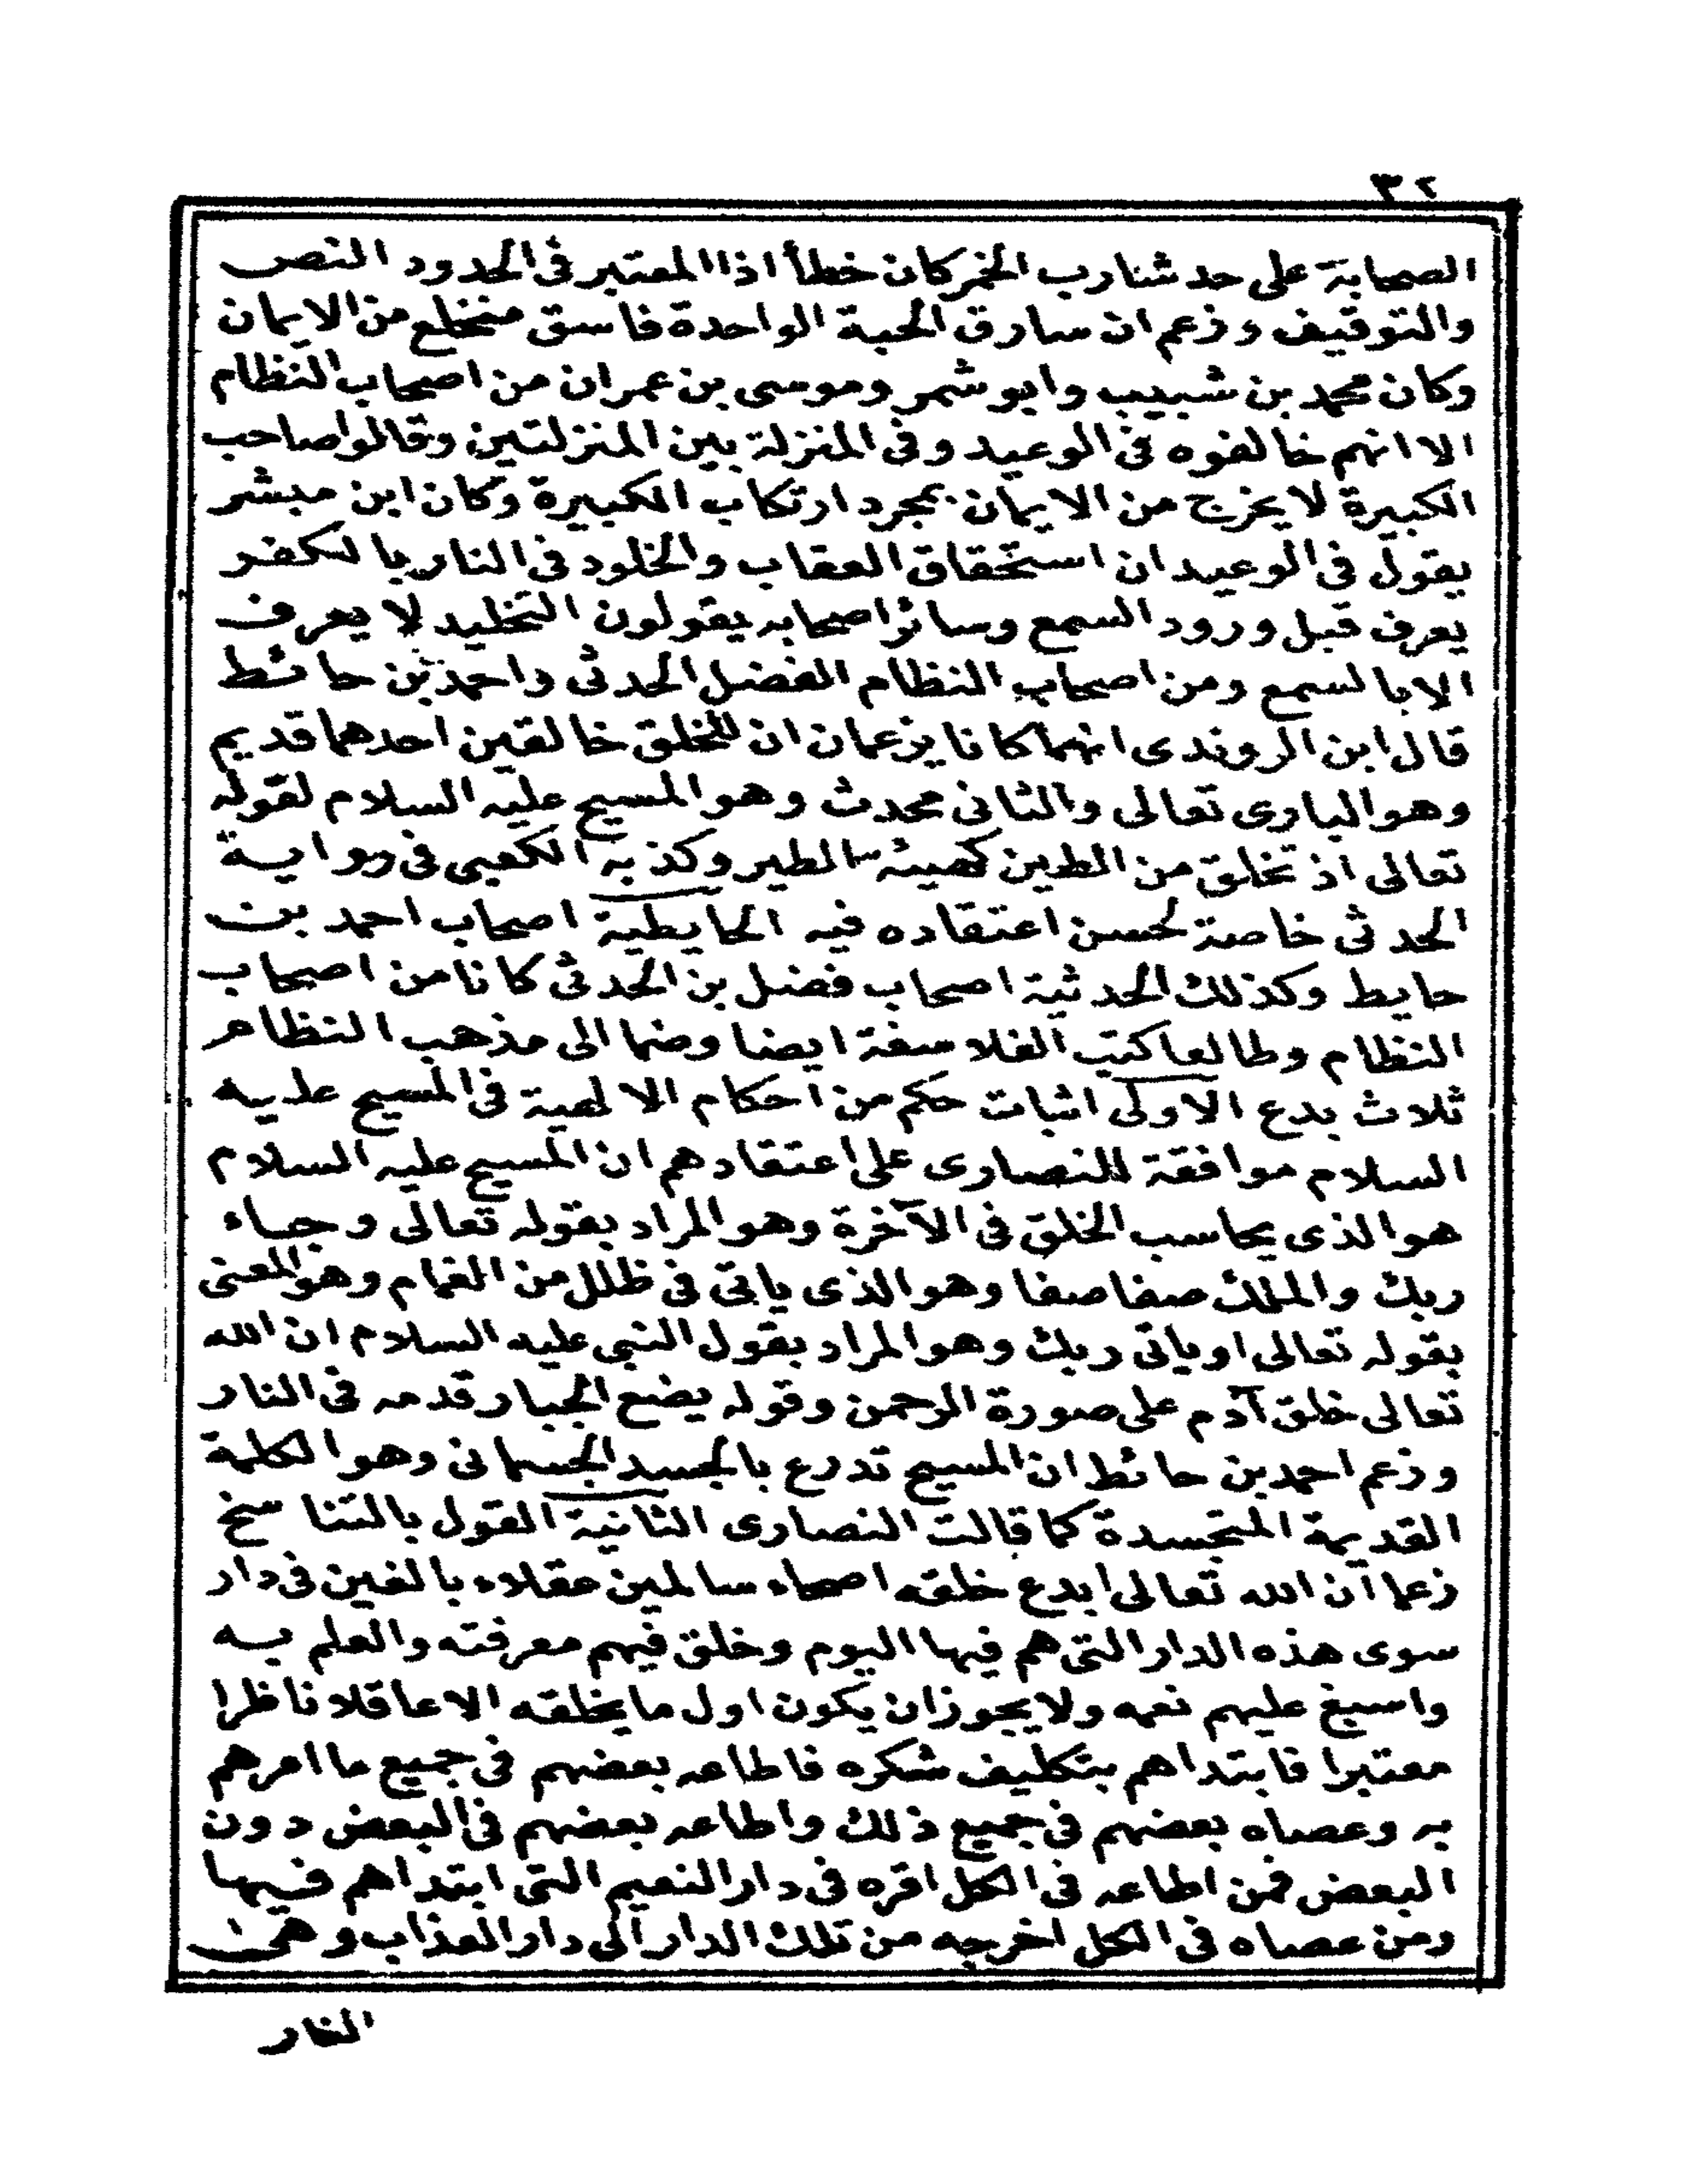 ٣٢
الصحابة على حد شارب الخمر كان خطأ اذا المعتبر فى الحدود النص
والتوقيف وزعم ان سارق الحبة الواحدة فاسق منخلع من الايمان
وكان محمد بن شبيب وابو شمر وموسى بن عمران من اصحاب النظام
الا انهم خالفوه فى الوعيد وفى المنزلة بين المنزلتين وقالوا صاحب
الكبيرة لا يخرج من الايمان بمجرد ارتكاب الكبيرة وكان ابن مبشر
يقول فى الوعيد ان استحقاق العقاب والخلود فى النار بالكفر
يعرف قبل ورود السمع وسائر اصحابه يقولون التخليد لا يعرف
الا بالسمع ومن اصحاب النظام الفضل الحدثى واحمد بن حائط
قال ابن الروندى انهما كانا يزعمان ان للخلق خالقين احدهما قديم
وهو البارى تعالى والثانى محدث وهو المسيح عليه السلام لقوله
تعالى اذ تخلق من الطين كهيئة الطير وكذبه الكعبى فى رواية
الحدثى خاصة لحسن اعتقاده فيه الحايطية اصحاب احمد بن
حايط وكذلك الحدثية اصحاب فضل بن الحدثى كانا من اصحاب
النظام وطالعا كتب الفلاسفة ايضا وضما الى مذهب النظام
ثلاث بدع الاولى اثبات حكم من احكام الالهية فى المسيح عليه
السلام موافقة للنصارى على اعتقادهم ان المسيح عليه السلام
هو الذى يحاسب الخلق فى الآخرة وهو المراد بقوله تعالى وجاء
ربك والملك صفا صفا وهو الذى ياتى فى ظلل من الغمام وهو المعنى
بقوله تعالى او ياتى ربك وهو المراد بقول النبى عليه السلام ان الله
تعالى خلق آدم على صورة الرحمن وقوله يضع الجبار قدمه فى النار
وزعم احمد بن حائط ان المسيح تدرع بالجسد الجسمانى وهو الكلمة
القديمة المتجسدة كما قالت النصارى الثانية القول بالتناسخ
زعما ان الله تعالى ابدع خلقه اصحاء سالمين عقلاء بالغين فى دار
سوى هذه الدار التى هم فيها اليوم وخلق فيهم معرفته والعلم به
واسبغ عليهم نعمه ولا يجوز ان يكون اول ما يخلقه الا عاقلا ناظرا
معتبرا فابتداهم بتكليف شكره فاطاعه بعضهم فى جميع ما امرهم
به وعصاه بعضهم فى جميع ذلك واطاعه بعضهم فى البعض دون
البعض فمن اطاعه فى الكل اقره فى دار النعيم التى ابتداهم فيها
ومن عصاه فى الكل اخرجه من تلك الدار الى دار العذاب وهى
النار